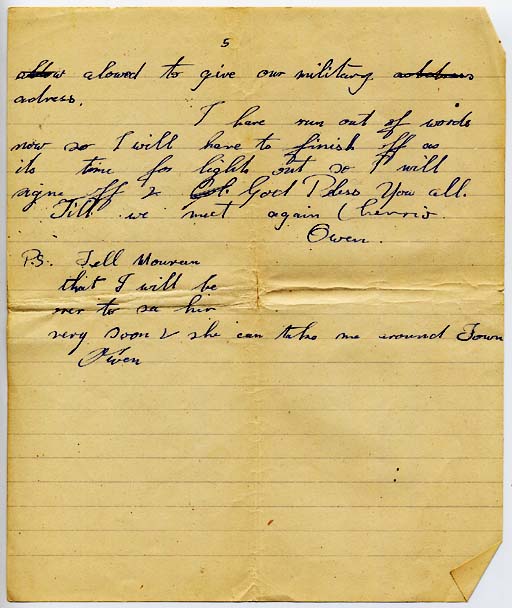 5
alowed to give our military
adress.
I have run out of words
now so I will have to finish off as
its time for lights out so I will
signe off & God Bless You all.
Till we meet again Cherrio
Owen.
P.S. Tell Mourean
that I will be
over to see her
very soon & she can take me around Town
Owen